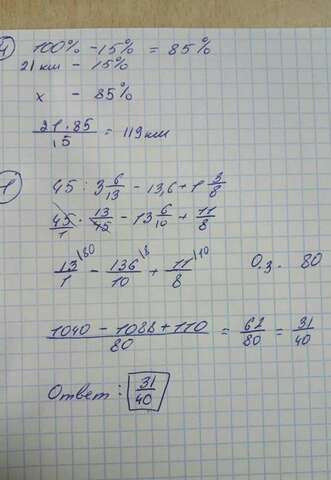 4) 100% - 15% = 85%
21 км - 15%
x - 85%
21·85/15 = 119 км
1) 45 : 3 6/13 - 13,6 + 1 3/8
45/1 · 13/45 - 13 6/10 + 11/8
13/1 \80 - 136/10 \8 + 11/8 \10 О.З. 80
1040 - 1088 + 110/80 = 62/80 = 31/40
Ответ: 31/40